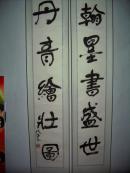 翰墨書盛世
丹音繪壯圖